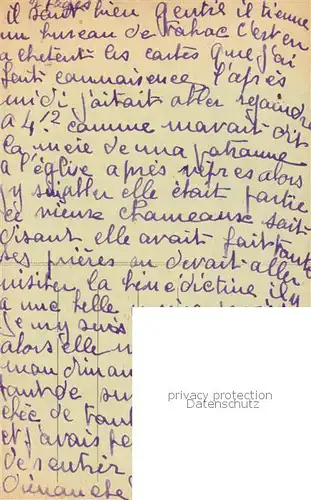 il sont bien gentil il tienne
un bureau de tabac c'est en
achetent les cartes que j'ai
fait connaisence l'après
midi j'aitait aller rejoindre
a 4.h comme m'avait dit
la niéce de ma patronne
a l'église après vepres alors
j'y suis aller elle était partie
ce vieux chameaux soit
disant elle avait fait toute
ses prières on devait aller
visiter la bénédictine il y
a une belle
je my suis
alors elle m
mon diman
tant de su
chée de tout
et j'avais pe
de rentrer
Dimanche
privacy protection
Datenschutz